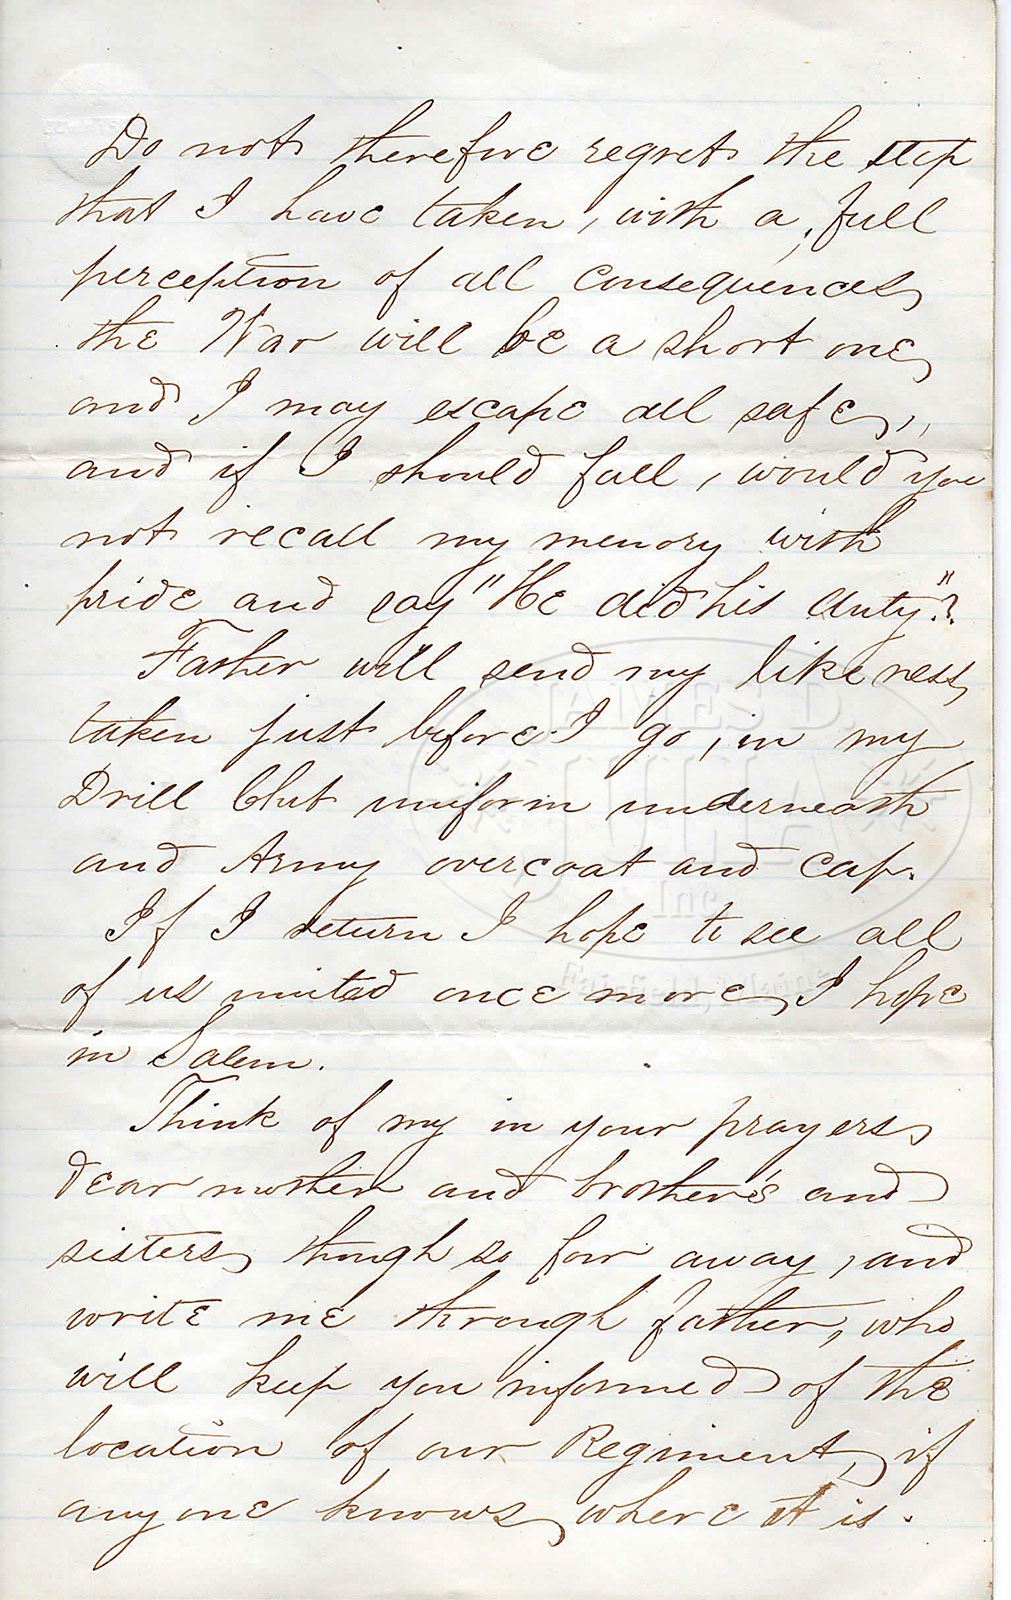 Do not therefore regret the step
that I have taken, with a, full
perception of all consequences,
the War will be a short one,
and I may escape all safe,,
and if I should fall, would you
not recall my memory with
pride and say "He did his duty."?
Father will send my likeness,
taken just before I go, in my
Drill Club uniform underneath
and Army overcoat and cap.
If I return I hope to see all
of us united once more, I hope
in Salem.
Think of my in your prayers,
dear mother and brother's and
sisters, though so far away, and
write me through father, who
will keep you informed of the
location of our Regiment, if
anyone knows, where it is.
JAMES D.
JULIA
Inc
Fairfield,